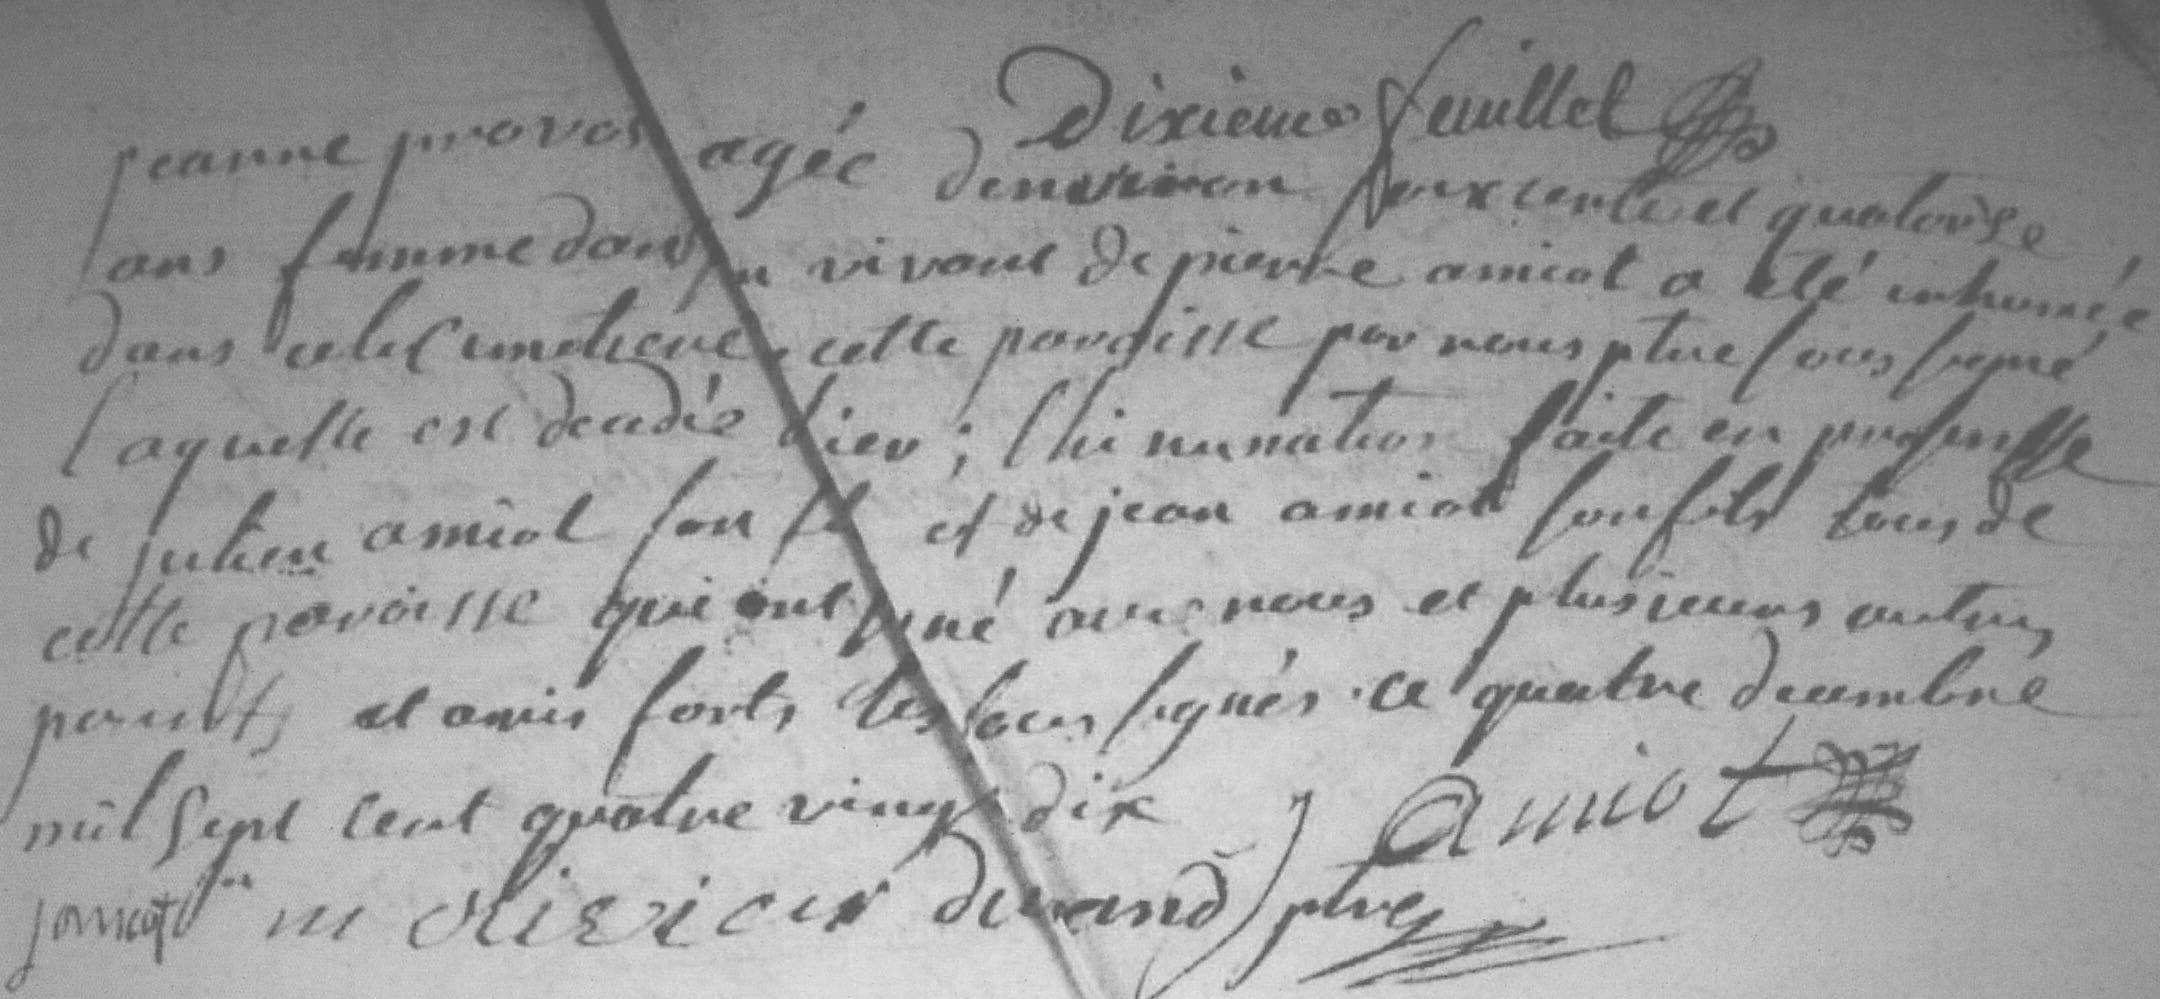 Dixieme feuillet
jeanne provos agée denviron soixcente et quatorse
ans femme dans son vivant de pierre amiot a eté inhumée
dans cimetiere cette paroisse par nous ptre sous signé
laquelle est decedée hier ; lhinumation faite en presensse
de julien amiot son fils et de jean amiot son fils tous de
cette paroisse qui ont signé avec nous et plusieurs autres
parents et amis les sous signés . ce quatre decembre
mil sept cent quatre vingt dix
amiot
j amiot m durand ptre